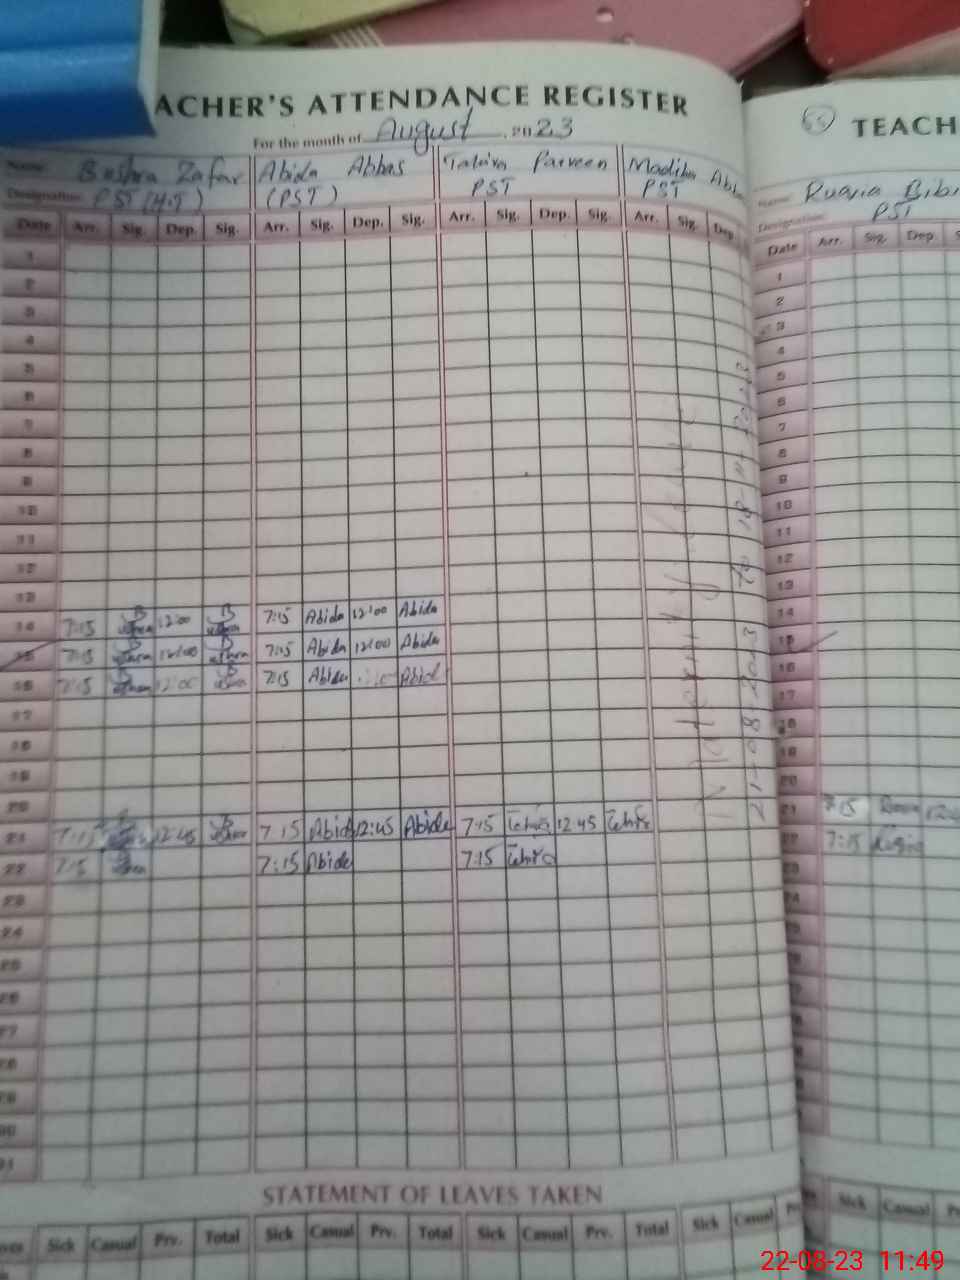 ACHER'S ATTENDANCE REGISTER
For the month of August, 2023
Name: Bushra Zafar Abida Abbas Tahira Parveen Madiha Abb
Designation: PST (H.T) (PST) PST PST
Date Arr. Sig. Dep. Sig. Arr. Sig. Dep. Sig. Arr. Sig. Dep. Sig. Arr. Sig. Dep.
1
2
3
4
5
6
7
8
9
10
11
12
13
14 7:15 Bushra 12:00 Bushra 7:15 Abida 12:00 Abida
15 7:15 Bushra 12:00 Bushra 7:15 Abida 12:00 Abida
16 7:15 Bushra 12:00 Bushra 7:15 Abida Abida
17
18
19
20
21 7:15 Bushra 12:45 Bushra 7:15 Abida 12:45 Abida 7:15 12:45
22 7:15 Bushra 7:15 Abida 7:15
23
24
25
26
27
28
29
30
31
Maternity leave
21-08-2023 to 18-11-2023
STATEMENT OF LEAVES TAKEN
Sick Casual Prv. Total Sick Casual Prv. Total Sick Casual Prv. Total Sick Casual
TEACH
Name: Bibi
Designation: PST
Date Arr. Sig. Dep.
1
2
3
4
5
6
7
8
9
10
11
12
13
14
15
16
17
18
19
20
21 7:15
22 7:15
23
24
Sick Casual
22-08-23 11:49